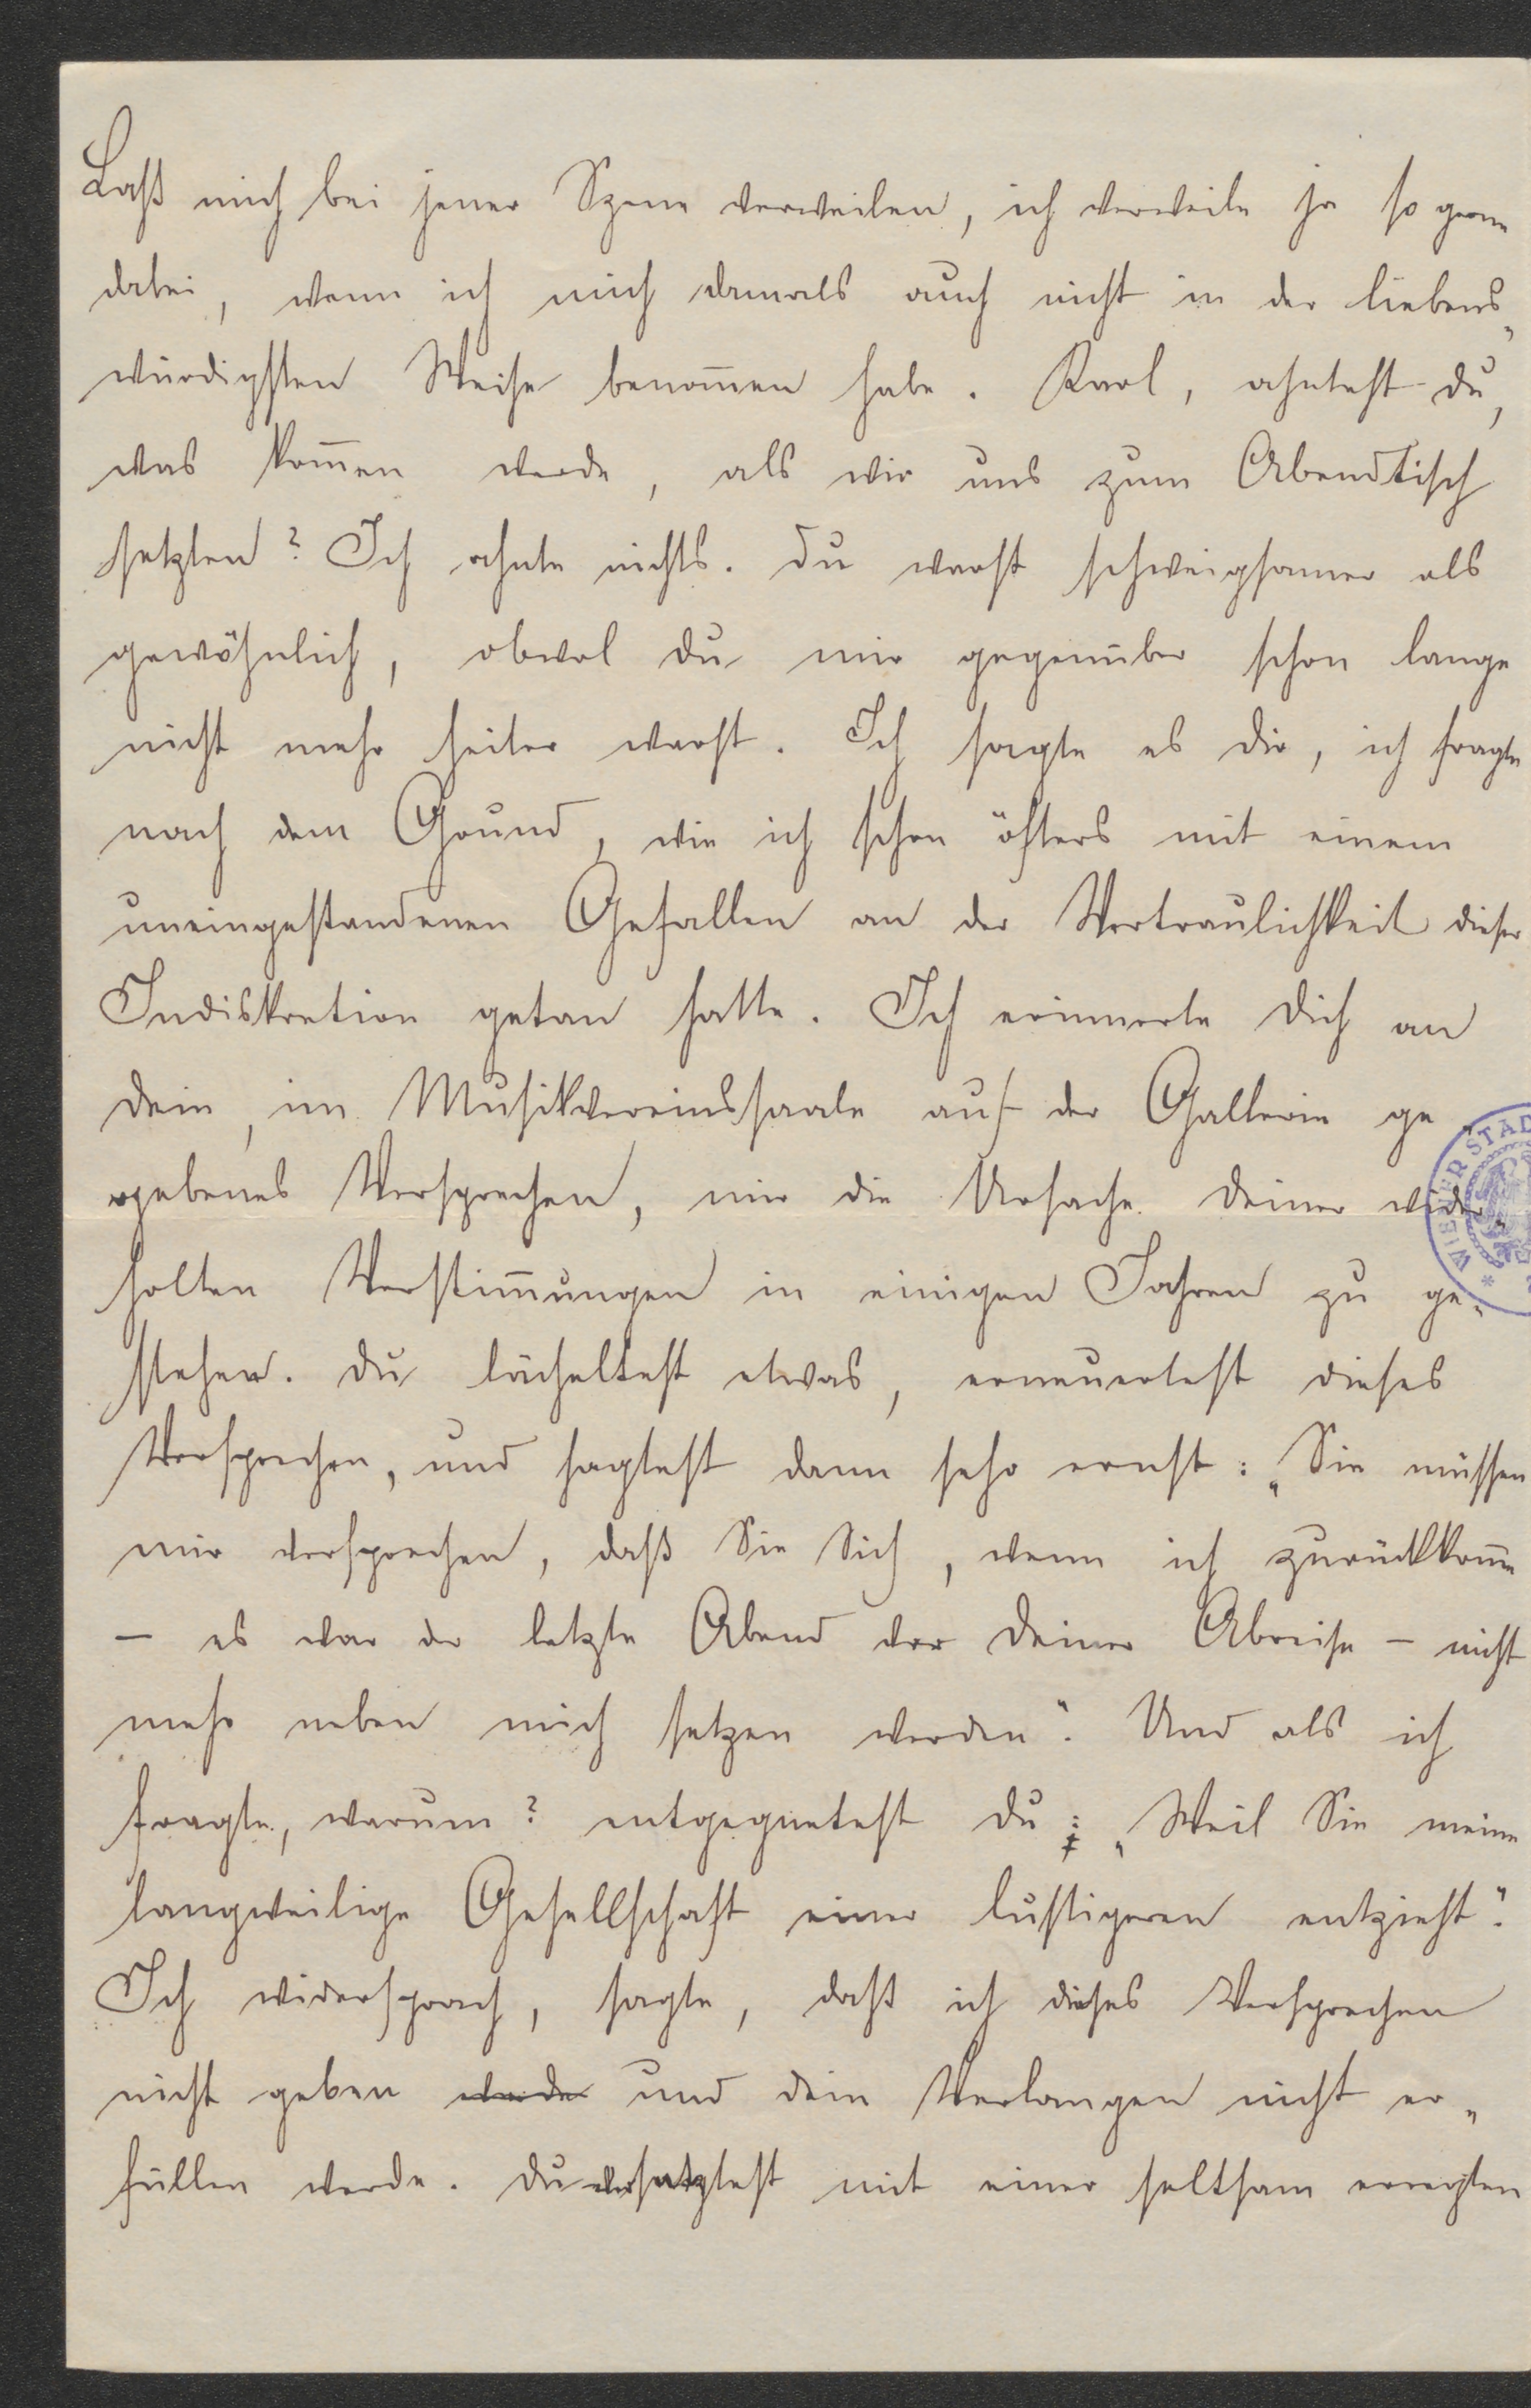 Laß mich bei jener Szene verweilen, ich verweile ja so gerne
dabei, wenn ich mich damals auch nicht in der liebens„
würdigsten Weise benom̄en habe. Karl, ahntest du,
was kom̄en werde, als wir uns zum Abendtisch
setzten? Ich ahnte nichts. Du warst schweigsamer als
gewöhnlich, obwol du mir gegenüber schon lange
nicht mehr heiter warst. Ich sagte es dir, ich fragte
nach dem Grund, wie ich schon öfters mit einem
uneingestandenen Gefallen an der Vertraulichkeit dieser
Indiskretion getan hatte. Ich erinnerte dich an
dein, im Musikvereinssaale auf der Gallerie ge„
gebenes Versprechen, mir die Ursache deiner wider„
holten Verstim̄ungen in einigen Jahren zu ge„
stehen. Du lächeltest etwas, erneuertest dieses
Versprechen, und sagtest dann sehr ernst: „Sie müssen
mir versprechen, daß Sie Sich, wenn ich zurückkom̄e
– es war der letzte Abend vor deiner Abreise – nicht
mehr neben mich setzen werden“. Und als ich
fragte, warum? entgegnetest du: „Weil Sie meine
langweilige Gesellschaft einer lustigeren entzieht“.
Ich widersprach, sagte, daß ich dieses Versprechen
nicht geben werde und dein Verlangen nicht er„
füllen werde. Du versetztest mit einer seltsam erregten
WIENER STAD